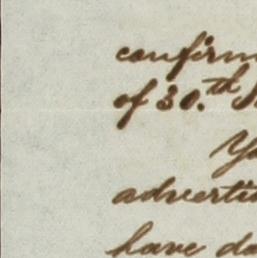 confirm
of 30.th S
Yo
adverti
have do